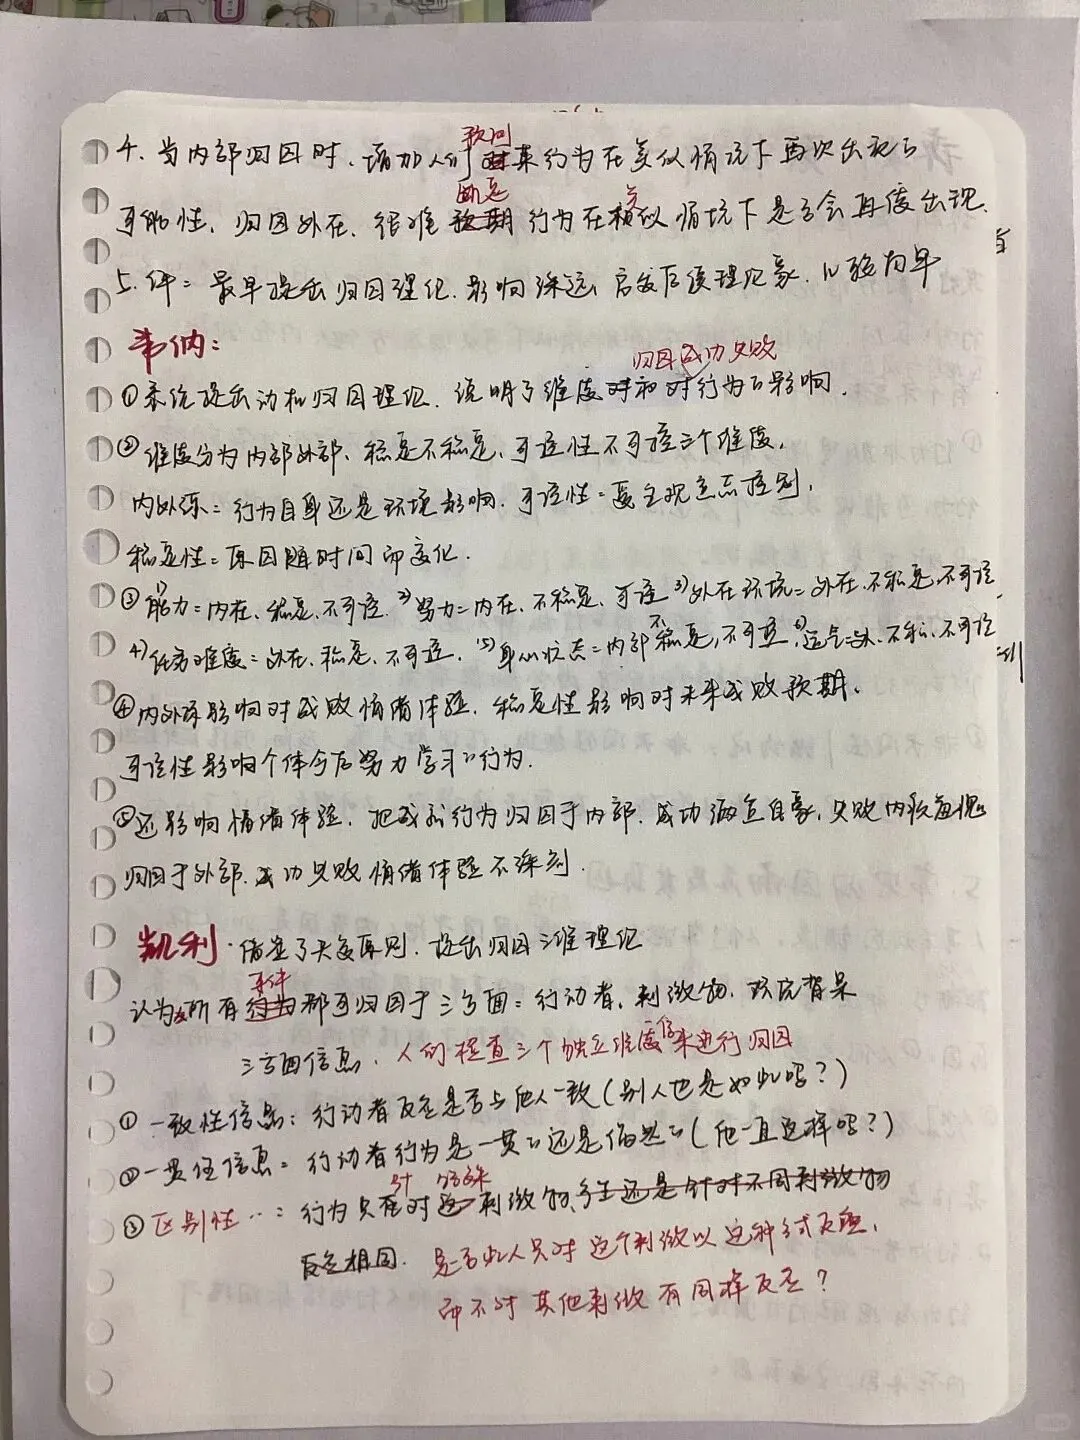 4. 当内部归因时、增加人们预测某行为在类似情况下再次出现的
可能性. 归因外在. 很难断定行为在类似情境下是否会再度出现.
5. 评: 最早提出归因理论. 影响深远、启发后续理论家.
韦纳:
①系统提出动机归因理论. 说明了维度归因成功失败和对行为的影响.
②维度分为内部外部、稳定不稳定、可控性不可控三个维度.
内外源: 行为自身还是环境影响. 可控性: 受主观意志控制.
稳定性: 原因随时间而变化.
③ 1)能力=内在、稳定、不可控. 2)努力=内在、不稳定、可控 3)外在环境=外在、不稳定、不可控
4)任务难度=外在、稳定、不可控. 5)身心状态=内部不稳定,不可控. 6)运气=外、不稳、不可控
④内外源影响对成败情绪体验. 稳定性影响对未来成败预期.
可控性影响个体今后努力学习的行为.
⑤还影响情绪体验. 把成就行为归因于内部. 成功满意自豪. 失败内疚羞愧
归因于外部. 成功失败情绪体验不深刻.
凯利. 借鉴了共变原则. 提出归因三维理论
认为所有事件都可归因于三方面: 行动者, 刺激物. 环境背景
三方面信息. 人们检查三个独立维度信来进行归因
① 一致性信息: 行动者反应是否与他人一致(别人也是如此吗?)
②一贯性信息: 行动者行为是一贯的还是偶然的(他一直这样吗?)
③ 区别性‥: 行为只针对特殊刺激物 产生还是针对不同刺激物
反应相同. 是否此人只对这个刺激以这种方式反应.
而不对其他刺激有同样反应?